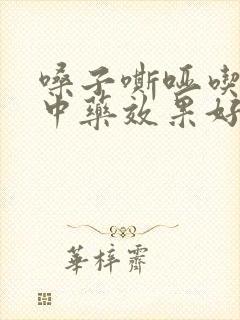 嗓子嘶哑喫
中藥效果好
華梓霽